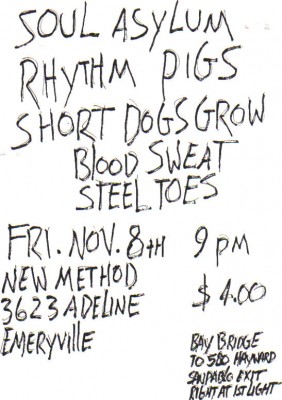 SOUL ASYLUM
RHYTHM PIGS
SHORT DOGS GROW
BLOOD SWEAT
STEEL TOES
FRI. NOV. 8TH 9 PM
NEW METHOD
3623 ADELINE
EMERYVILLE
$4.00
BAY BRIDGE
TO 580 HAYWARD
SANPABLO EXIT
RIGHT AT 1ST LIGHT